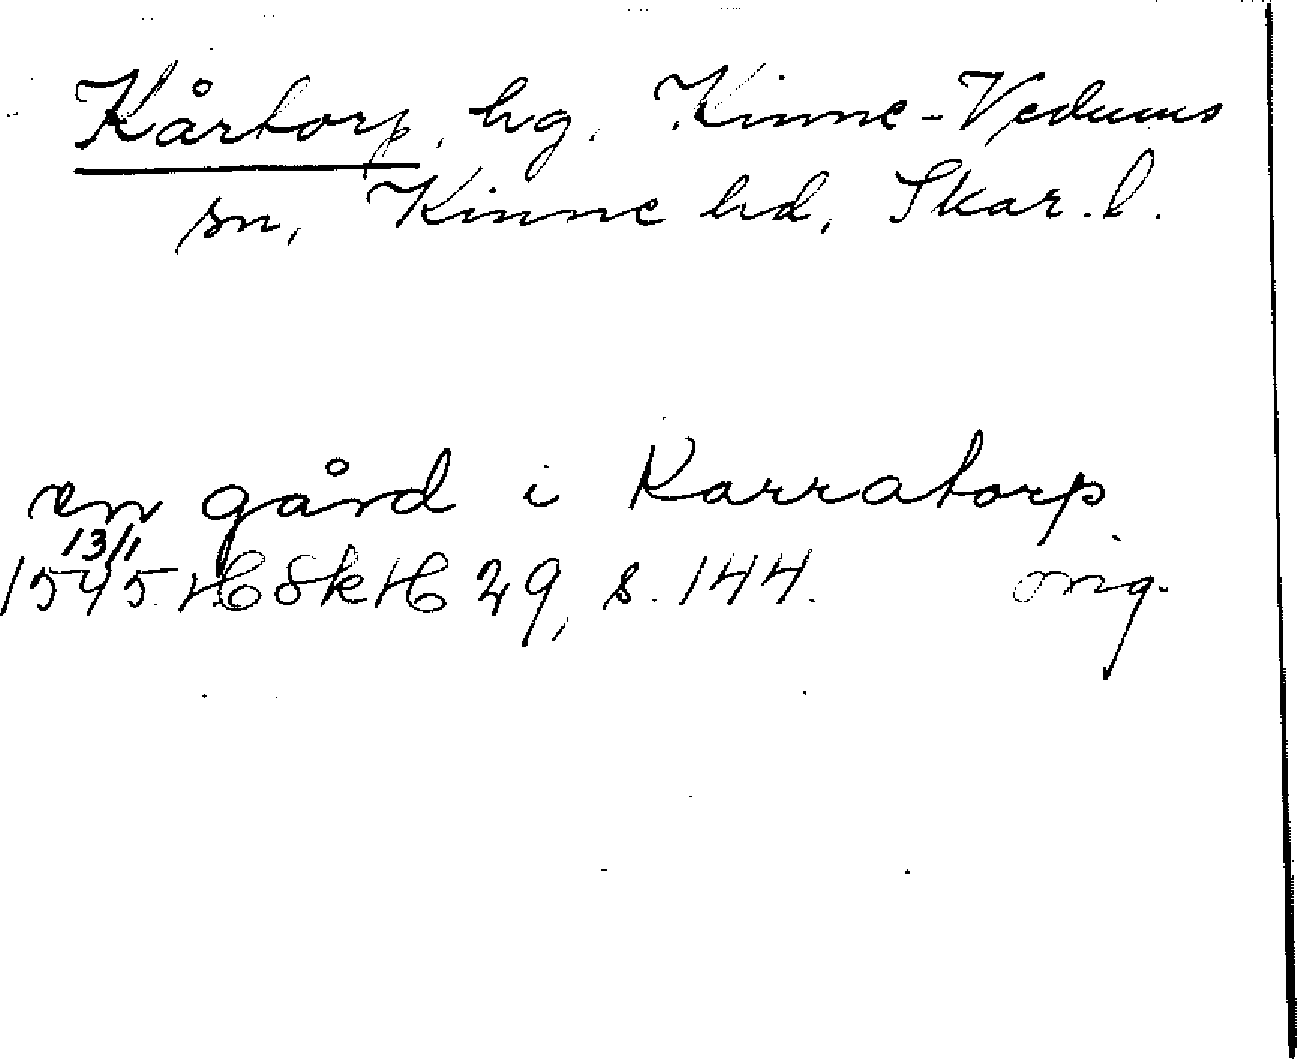 Kårtorp, hg, Kinne-Vedums
sn, Kinne hd, Skar. l.
en gård i Karratorp
13/11
1545. HSkH 29, s. 144. orig.